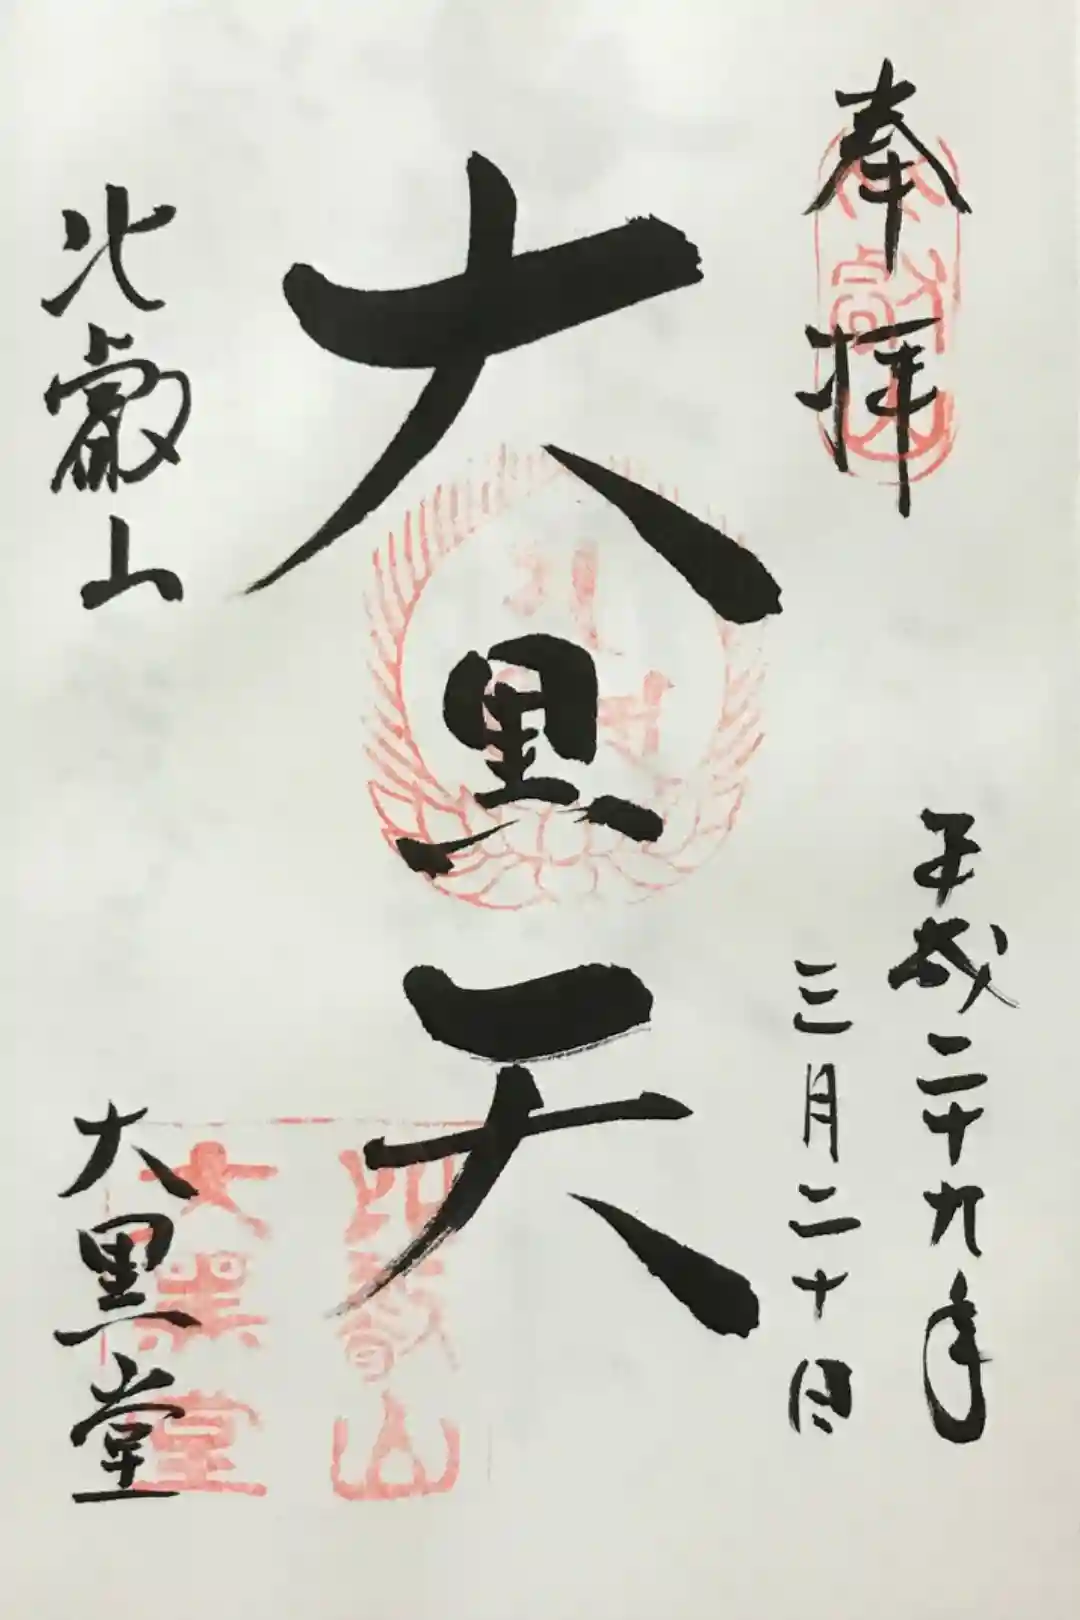 奉拝
平成二十九年
三月二十日
大黒天
比叡山
大黒堂
比叡山
比叡山
大黒堂